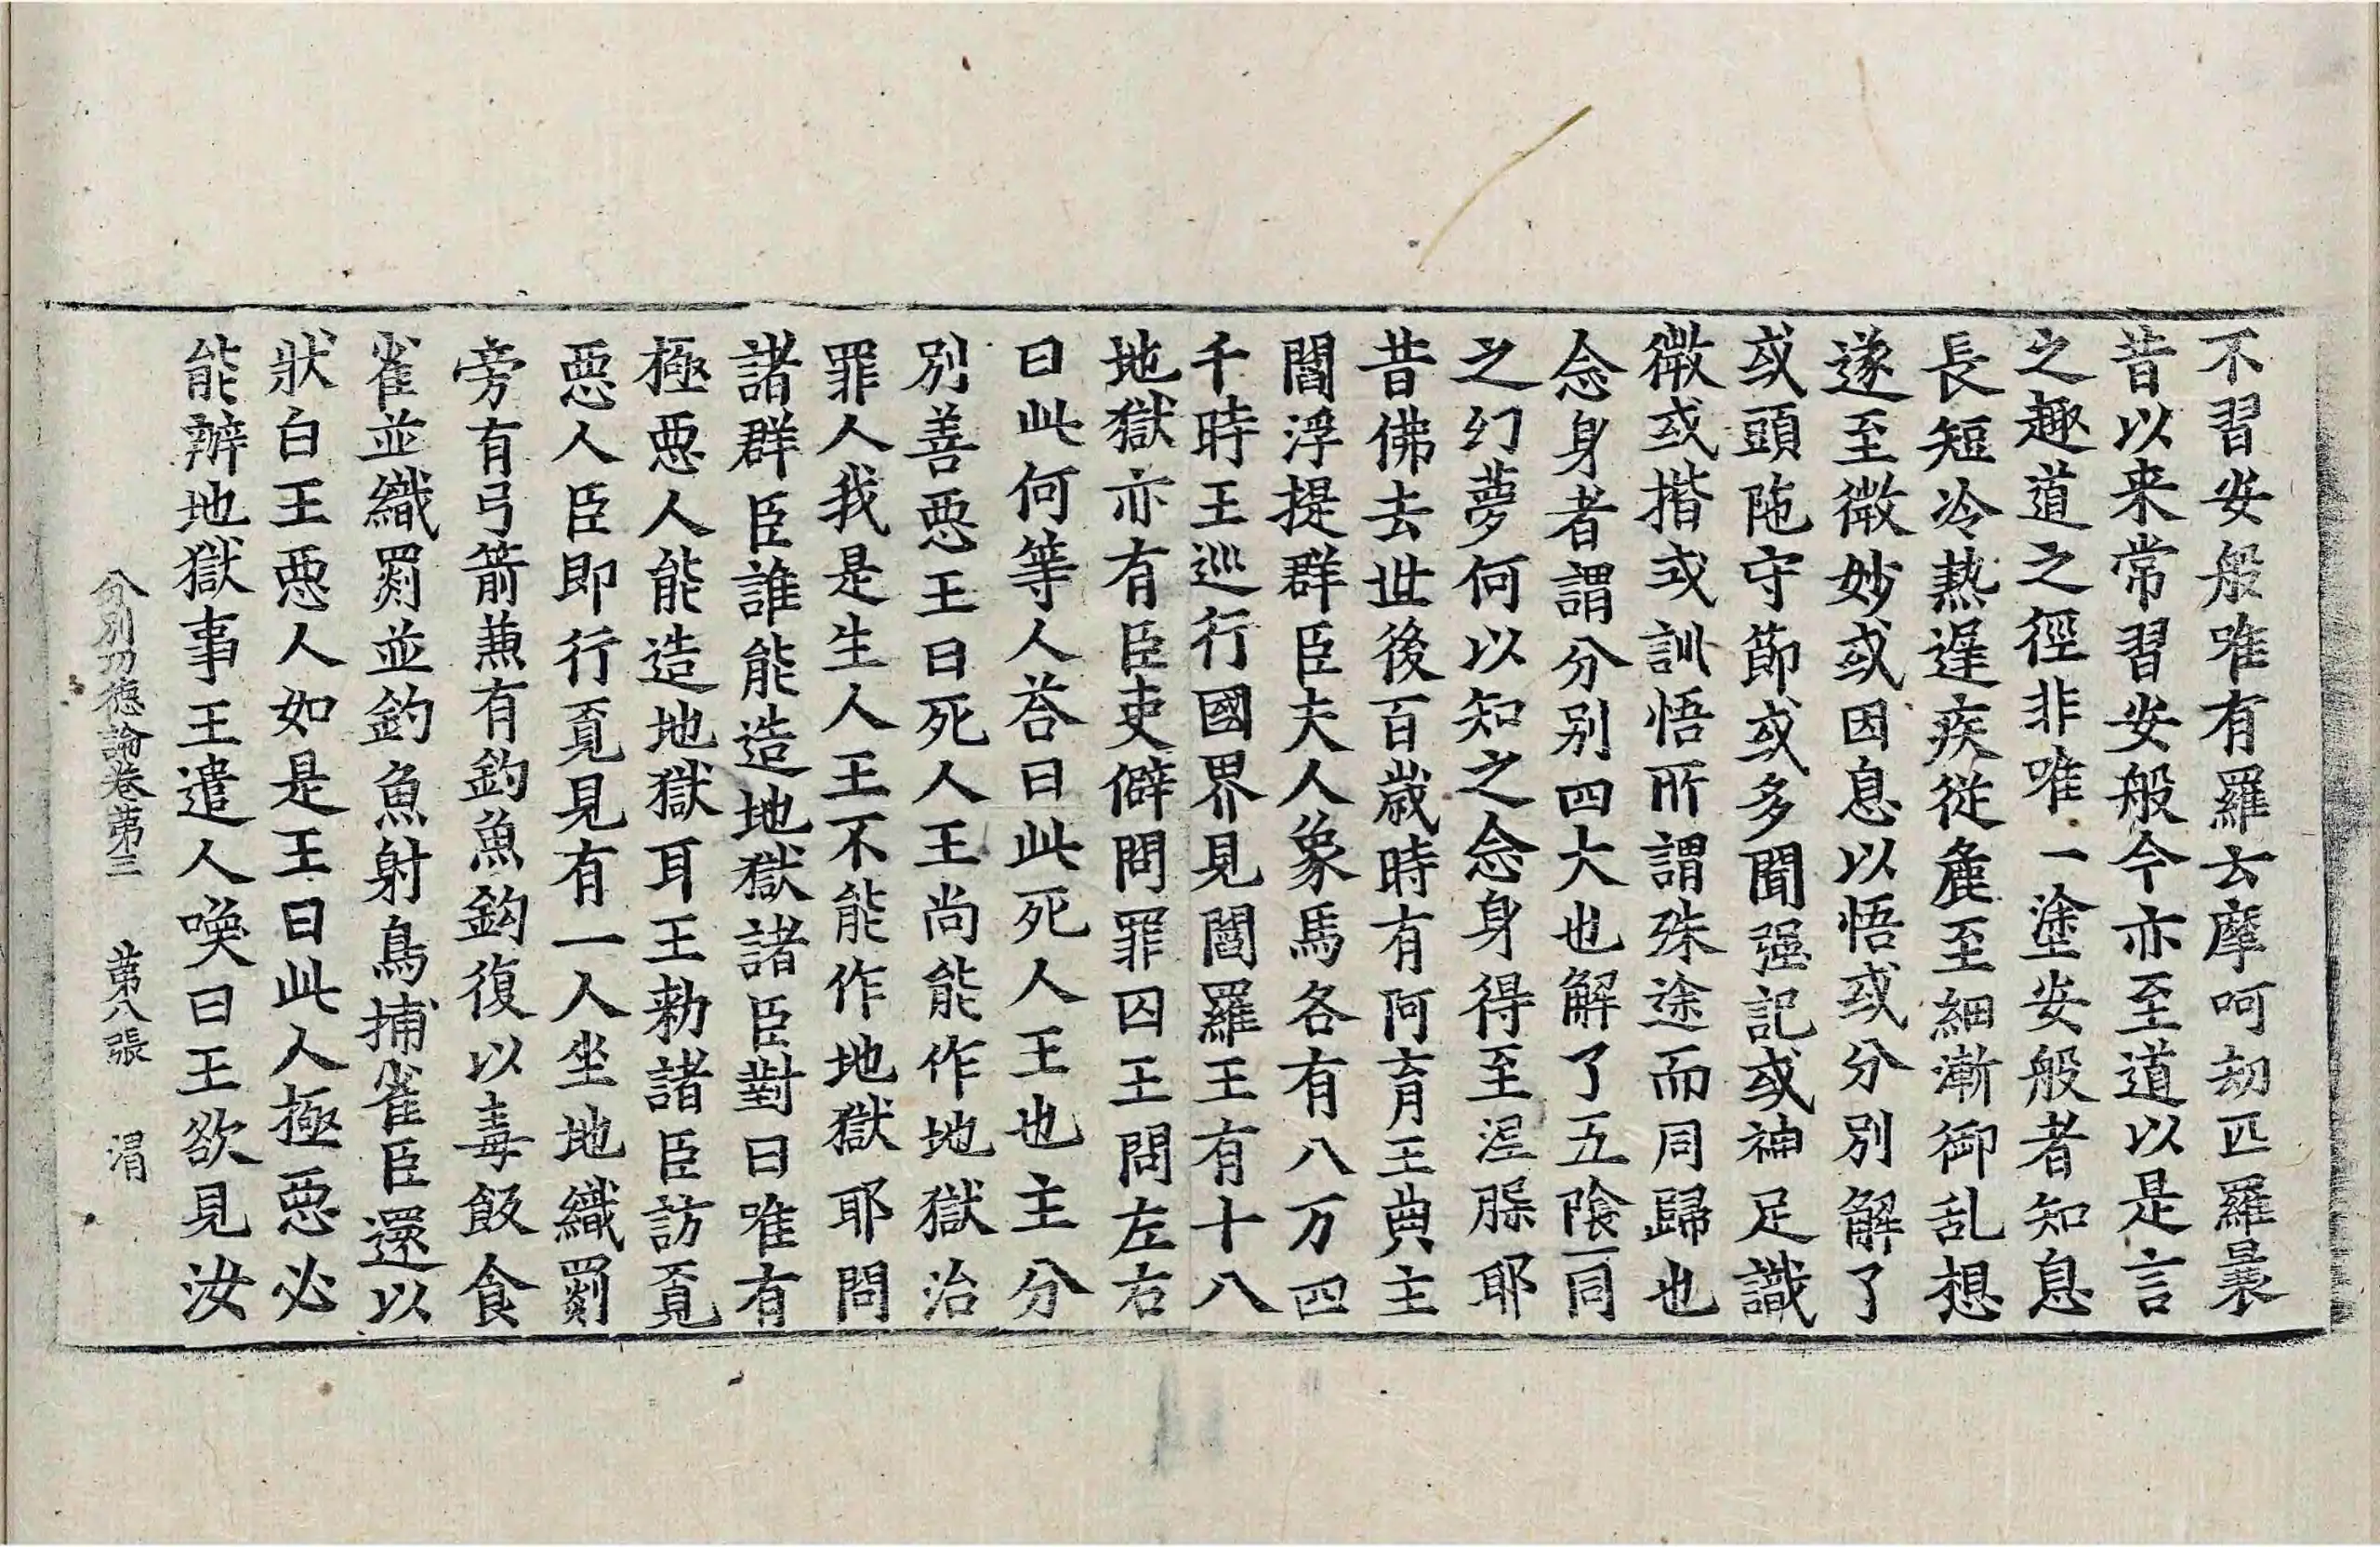 不習安般唯有羅云摩呵刼匹羅曩
昔以来常習安般今亦至道以是言
之趣道之徑非唯一塗安般者知息
長短冷熱遅疾從麁至細漸御乱想
遂至微妙或因息以悟或分別解了
或頭陁守節或多聞强記或神足識
微或揩或訓悟所謂殊途而同歸也
念身者謂分别四大也解了五隂一同
之幻夢何以知之念身得至涅槃耶
昔佛去世後百歳時有阿育王典主
閻浮提群臣夫人象馬各有八万四
千時王巡行國界見閻羅王有十八
地獄亦有臣吏僻問罪囚王問左右
曰此何等人荅曰此死人王也主分
別善惡王曰死人王尚能作地獄治
罪人我是生人王不能作地獄耶問
諸群臣誰能造地獄諸臣對曰唯有
極惡人能造地獄耳王勑諸臣訪覔
惡人臣即行覔見有一人坐地織罽
旁有弓箭蒹有釣魚鈎復以毒飯食
雀並織罽並釣魚射鳥捕雀臣還以
狀白王惡人如是王曰此人極惡必
能辦地獄事王遣人喚曰王欲見汝
分別功德論卷第三　第八張　渭